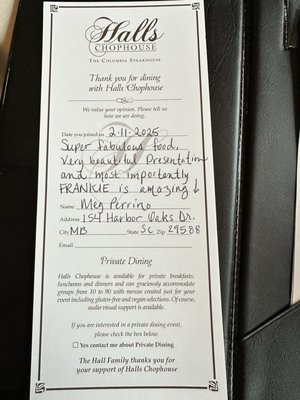 Halls
CHOPHOUSE
THE COLUMBIA STEAKHOUSE
Thank you for dining
with Halls Chophouse
We value your opinion. Please tell us
how we are doing.
Date you joined us 2-11-2025
Super fabulous food,
Very beautiful Presentation
and most importantly
FRANKIE is amazing!
Name Meg Perrino
Address 154 Harbor Oaks Dr.
City MB State SC Zip 29588
Email
Private Dining
Halls Chophouse is available for private breakfasts,
luncheons and dinners and can graciously accommodate
groups from 10 to 90 with menus created just for your
event including gluten-free and vegan selections. Of course,
audio visual support is available.
If you are interested in a private dining event,
please check the box below.
Yes contact me about Private Dining
The Hall Family thanks you for
your support of Halls Chophouse